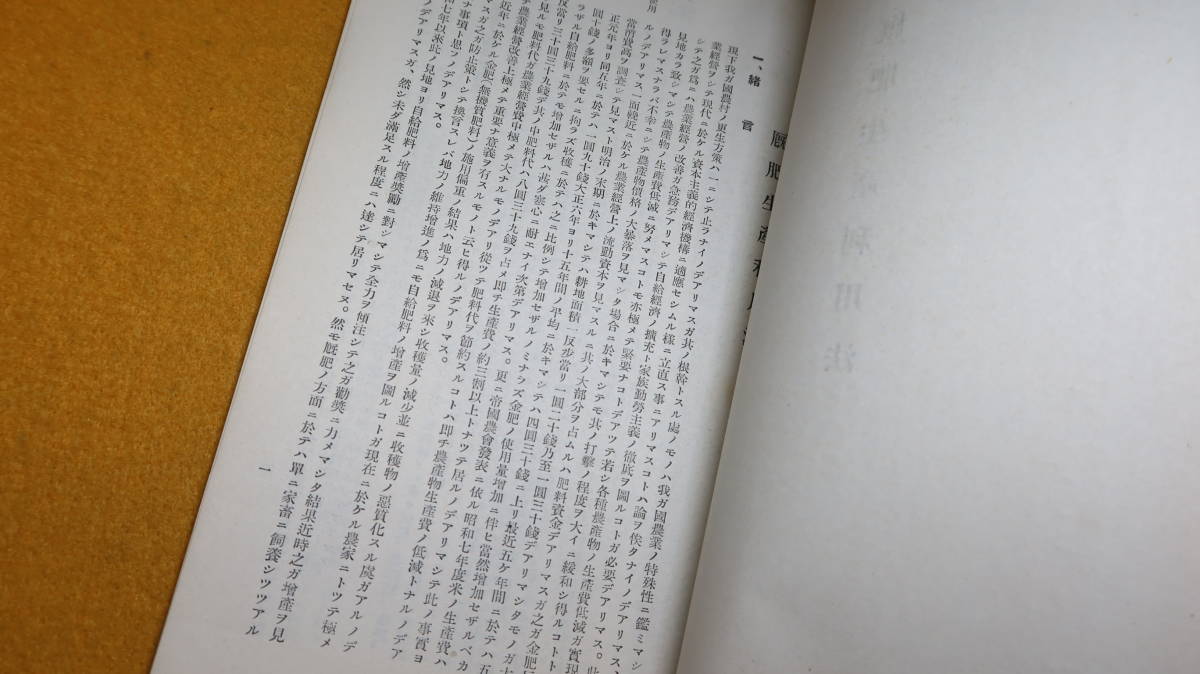 厩肥生產利用法
一、緖言
現下我ガ國農村ノ更生方策ハ一ニシテ止ラナイノデアリマスガ其ノ根幹トスル處ノモノハ我ガ國農業ノ特殊性ニ鑑ミマシ
業經營ヲシテ現代ニ於ケル資本主義的經濟機構ニ適應セシムル樣ニ立直ス事ニアリマスコトハ論ヲ俟タナイノデアリマス
シテ之ガ爲ニハ農業經營ノ改善ガ急務デアリマシテ自給經濟ノ擴充ト家族勤勞主義ノ徹底ヲ圖ルコトガ必要デアリマス。此
見地カラ致シマシテ農產物ノ生產費低減ニ努メマスコトモ亦極メテ緊要ナコトデアツテ若シ各種農產物ノ生產費低減ガ實現
得ラレマスナラバ不幸ニシテ農產物價格ノ大暴落ヲ見マシタ場合ニ於キマシテモ其ノ打擊ノ程度ヲ大イニ緩和シ得ルコト
ルノデアリマス一面繰近ニ於ケル農業經營上ノ流動資本ヲ見マスルニ其ノ大部分ヲ占ムルハ肥料資金デアリマスガ之ガ金肥
當消費高ヲ調査シテ見マスト明治ノ末期ニ於キマシテハ耕地面積一反步當リ一圓二十錢乃至一圓三十錢デアリマシタモノガ大
正元年ヨリ同五年ニ於テハ一圓九十錢大正六年ヨリ十五年間ノ平均ニ於キマシテハ四圓三十錢ニ上リ最近五ケ年間ニ於テハ五
圓十錢ノ多額ヲ要セルニ拘ラズ收穫ニ於テハ之ニ比例シテ增加セザルノミナラズ金肥ノ使用量增加ニ伴ヒ當然增加セザルベカ
ラザル自給肥料ニ於テモ增加セザルハ甚ダ寒心ニ耐エナイ次第デアリマス。更ニ帝國農會發表ニ依ル昭和七年度米ノ生產費ハ
反當リ三十圓三十九錢デ其ノ中肥料代ハ八圓三十九錢ヲ占メ即チ生產費ノ約三割以上トナツテ居ルノデアリマシテ此ノ事實ヨ
見ルモ肥料代ガ農業經營費中極メテ大ナルモノデアリ從ツテ肥料代ヲ節約スルコトハ即チ農產物生產費ノ低減トナルノデア
テ農業經營改善上極メテ重要ナ意義ヲ有スルモノト云ヒ得ルノデアリマス。
近年ニ於ケル金肥(無機質肥料)ノ施用偏重ノ結果ハ地力ノ減退ヲ來シ收穫量ノ減少並ニ收穫物ノ惡質化スル虞ガアルノデ
マスガ之ガ防止策トシテ換言スレバ地力ノ維持增進ノ爲ニモ自給肥料ノ增產ヲ圖ルコトガ現在ニ於ケル農家ニトツテ極メ
ナ事項ト思フノデアリマス。
七年以來此ノ見地ヨリ自給肥料ノ增產奬勵ニ對シマシテ全力ヲ傾注シテ之ガ勸奬ニ力メマシタ結果近時之ガ增產ヲ見
デアリマスガ、然シ未ダ滿足スル程度ニハ達シテ居リマセヌ。然モ厩肥ノ方面ニ於テハ單ニ家畜ニ飼養シツツアル
一